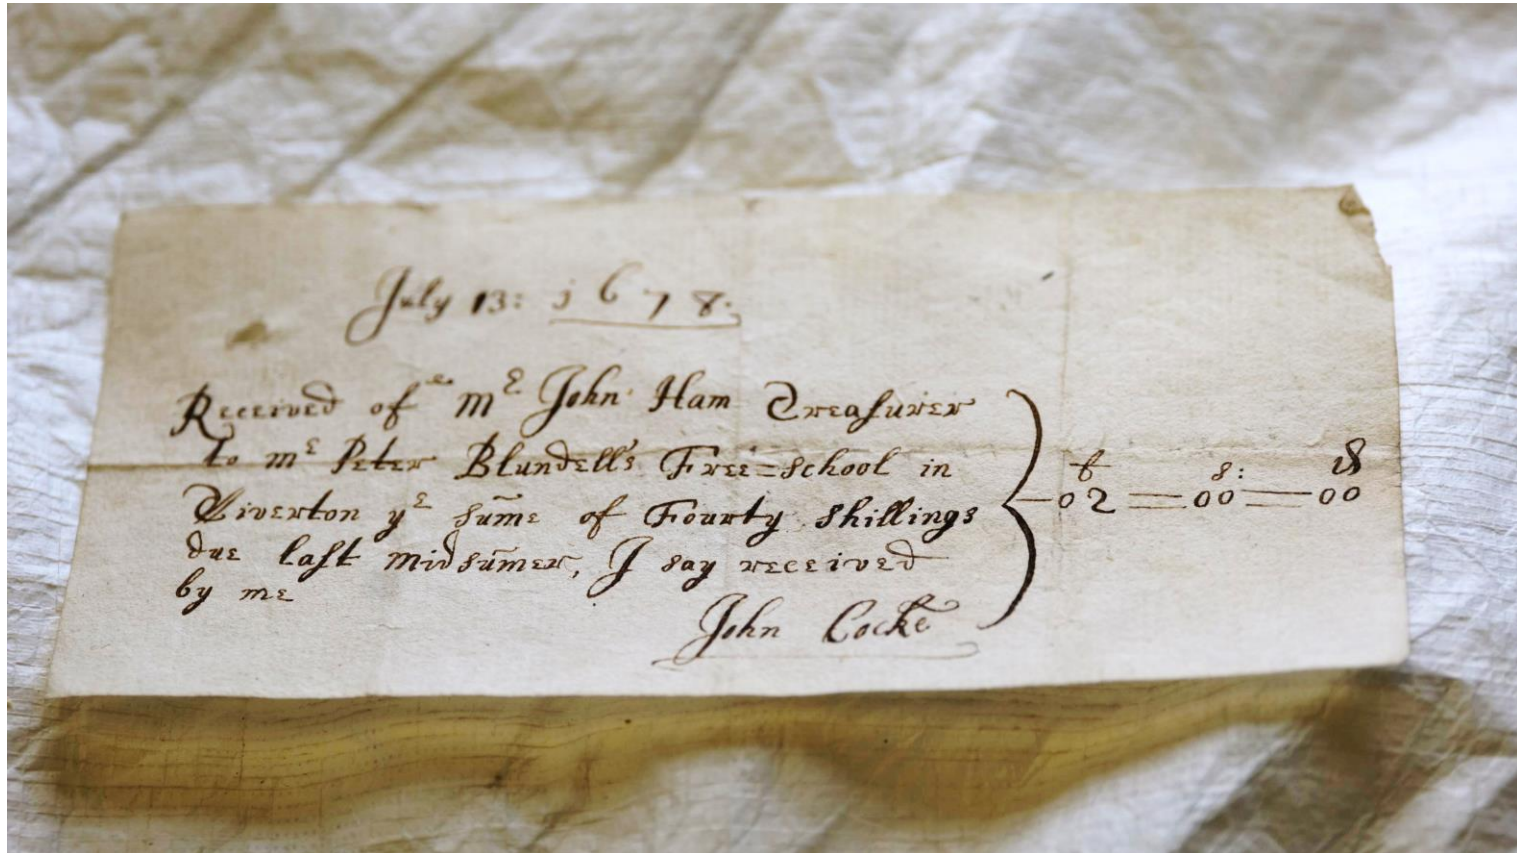 July 13: 1678.
Received of Mr John Ham Treasurer
to mr Peter Blundells Free=school in
Tiverton ye sum̄e of Fourty shillings
due last midsum̄er, I say received
by me
John Cocke
£ s: d
02 = 00 = 00